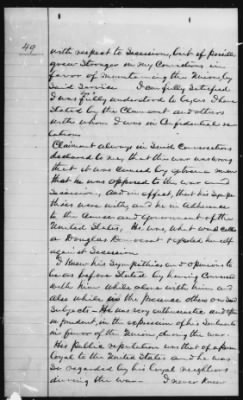 49
with respect to Secession, but if possible
grew Stronger in my Convictions in
favor of maintaining the Union, by
Said Service I am fully Satisfied
I was fully understood to be as I have
Stated by the Claimant and others
with whom I was in Confidential re
lations
Claimant always in Said Conversations
declared to me, that the war was wrong
that it was caused by extreme men
that he was opposed to the war and
Secession, and in effect, that his Sympa
thies were with and he in adherence
to the cause and government of the
United States, He was, what was called
a Douglas Democrat opposed himself
against Secession
I knew his Sympathies and opinions to
be as before Stated by having Conversed
with him while alone with him and
also while in the presence others on said
Subjects - He was very enthusiastic and often
imprudent, in the expression of his Sentiments
in favor of the Union, during the war.
His public reputation was that of a person
loyal to the United States and he was
So regarded by his loyal neighbors
during the war - I never knew